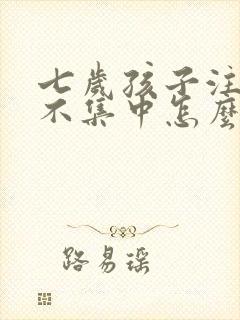 七歲孩子注
不集中怎麼
路易瑶